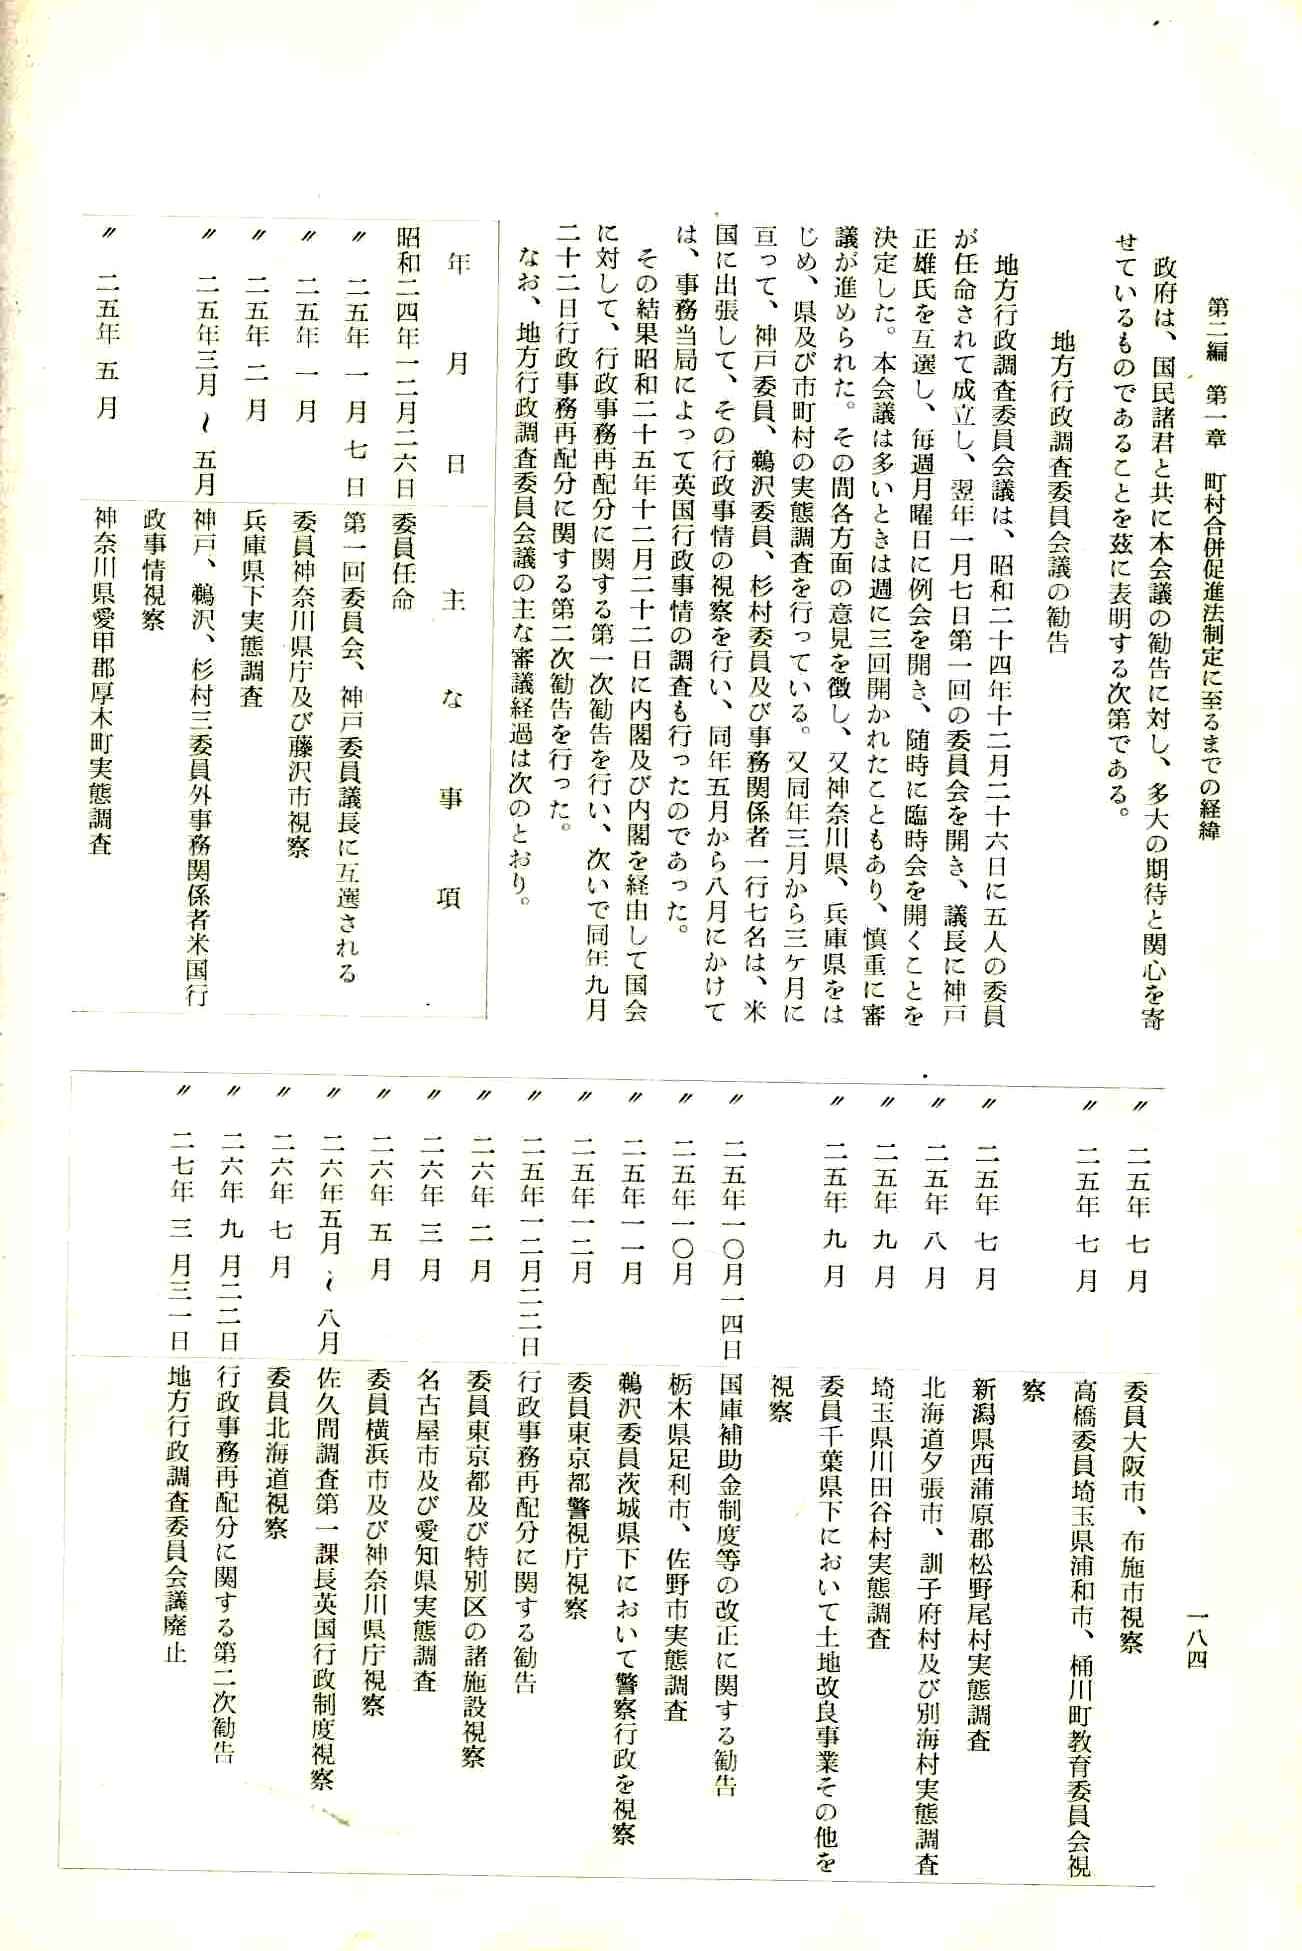 第二編　第一章　町村合併促進法制定に至るまでの経緯
一八四
政府は、国民諸君と共に本会議の勧告に対し、多大の期待と関心を寄
せているものであることを茲に表明する次第である。
地方行政調査委員会議の勧告
地方行政調査委員会議は、昭和二十四年十二月二十六日に五人の委員
が任命されて成立し、翌年一月七日第一回の委員会を開き、議長に神戸
正雄氏を互選し、毎週月曜日に例会を開き、随時に臨時会を開くことを
決定した。本会議は多いときは週に三回開かれたこともあり、慎重に審
議が進められた。その間各方面の意見を徴し、又神奈川県、兵庫県をは
じめ、県及び市町村の実態調査を行っている。又同年三月から三ケ月に
亘って、神戸委員、鵜沢委員、杉村委員及び事務関係者一行七名は、米
国に出張して、その行政事情の視察を行い、同年五月から八月にかけて
は、事務当局によって英国行政事情の調査も行ったのであった。
その結果昭和二十五年十二月二十二日に内閣及び内閣を経由して国会
に対して、行政事務再配分に関する第一次勧告を行い、次いで同年九月
二十二日行政事務再配分に関する第二次勧告を行った。
なお、地方行政調査委員会議の主な審議経過は次のとおり。
年月日　主な事項
昭和二四年一二月二六日　委員任命
〃　二五年　一月　七日　第一回委員会、神戸委員議長に互選される
〃　二五年　一月　委員神奈川県庁及び藤沢市視察
〃　二五年　二月　兵庫県下実態調査
〃　二五年三月～五月　神戸、鵜沢、杉村三委員外事務関係者米国行
政事情視察
〃　二五年　五月　神奈川県愛甲郡厚木町実態調査
〃　二五年　七月　委員大阪市、布施市視察
〃　二五年　七月　高橋委員埼玉県浦和市、桶川町教育委員会視
察
〃　二五年　七月　新潟県西蒲原郡松野尾村実態調査
〃　二五年　八月　北海道夕張市、訓子府村及び別海村実態調査
〃　二五年　九月　埼玉県川田谷村実態調査
〃　二五年　九月　委員千葉県下において土地改良事業その他を
視察
〃　二五年一〇月一四日　国庫補助金制度等の改正に関する勧告
〃　二五年一〇月　栃木県足利市、佐野市実態調査
〃　二五年一一月　鵜沢委員茨城県下において警察行政を視察
〃　二五年一二月　委員東京都警視庁視察
〃　二五年一二月二二日　行政事務再配分に関する勧告
〃　二六年　二月　委員東京都及び特別区の諸施設視察
〃　二六年　三月　名古屋市及び愛知県実態調査
〃　二六年　五月　委員横浜市及び神奈川県庁視察
〃　二六年五月～八月　佐久間調査第一課長英国行政制度視察
〃　二六年　七月　委員北海道視察
〃　二六年　九月二二日　行政事務再配分に関する第二次勧告
〃　二七年　三月三一日　地方行政調査委員会議廃止